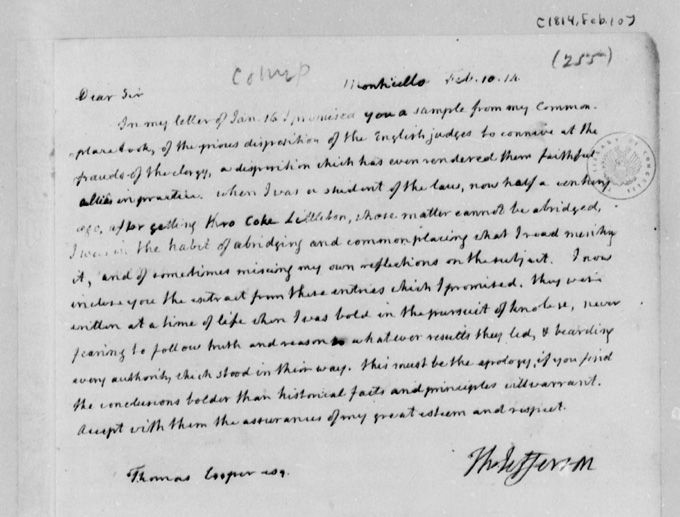 C1814, Feb. 10 J
(255)
Comp
Monticello Feb. 10. 14.
Dear Sir
In my letter of Jan. 16 I promised you a sample from my common-
place book, of the pious disposition of the English judges to connive at the
frauds of the clergy, a disposition which has even rendered them faithful
allies in practice. when I was a student of the law, now half a century
ago, after getting thro' Coke Littleton, whose matter cannot be abridged,
I was in the habit of abridging and commonplacing what I read meriting
it, and of sometimes mixing my own reflections on the subject. I now
inclose you the extract from these entries which I promised. they were
written at a time of life when I was bold in the pursuit of knolege, never
fearing to follow truth and reason to whatever results they led, & bearding
every authority which stood in their way. this must be the apology, if you find
the conclusions bolder than historical facts and principles will warrant.
Accept with them the assurances of my great esteem and respect.
Th: Jefferson
Thomas Cooper esq.